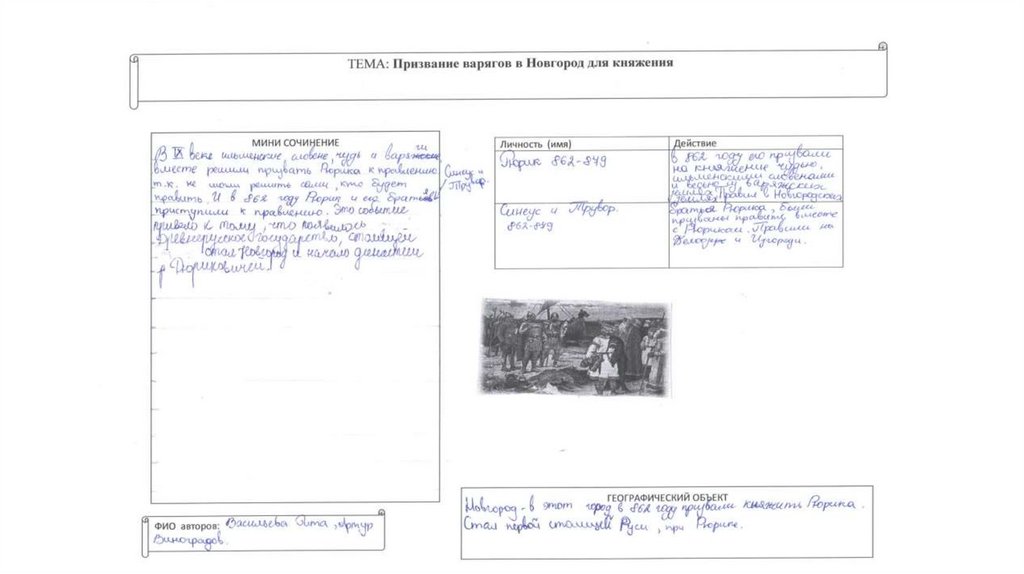 ТЕМА: Призвание варягов в Новгород для княжения
МИНИ СОЧИНЕНИЕ
В IX веке ильменские словене, чудь и варяги
вместе решили призвать Рюрика к правлению
Синеус и
Трувор.
т.к. не могли решить сами, кто будет
править. И в 862 году Рюрик и его братья
приступили к правлению. Это событие
привело к тому, что появилось
Древнерусское государство, столицей
стал Новгород и начало династии
Рюриковичей.
Личность (имя)
Действие
Рюрик 862-879
в 862 году его призвали
на княжение чудью,
ильменскими словенами
и
землях. Правил в Новгородских
землях
Синеус и Трувор.
862-879
Братья Рюрика, были
призваны править вместе
с Рюриком. Правили на
Белоозере и
ГЕОГРАФИЧЕСКИЙ ОБЪЕКТ
Новгород - в этот город в 862 году призвали княжить Рюрика.
Стал первой столицей Руси, при Рюрике.
ФИО авторов: Васильева Рита, Артур
Виноградов.